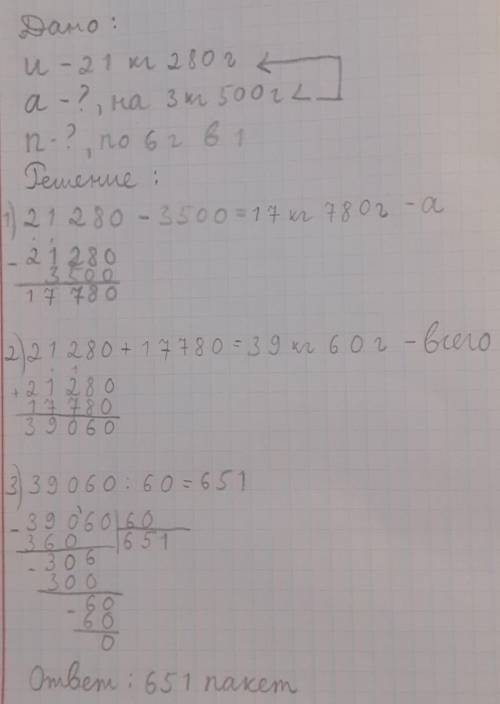 Дано:
и - 21 кг 280 г
а - ?, на 3 кг 500 г <
п - ?, по 6 г в 1
Решение:
1) 21 280 - 3500 = 17 кг 780 г - а
- 21280
3500
17 780
2) 21 280 + 17780 = 39 кг 60 г - всего
+ 21 280
17 780
39060
3) 39060 : 60 = 651
- 39060 60
360 651
- 306
300
- 60
60
0
Ответ: 651 пакет